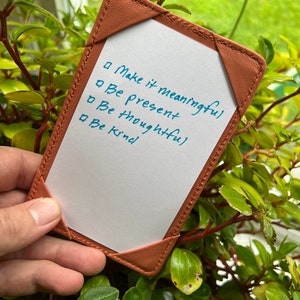 □ Make it meaningful
□ Be present
□ Be thoughtful
□ Be kind